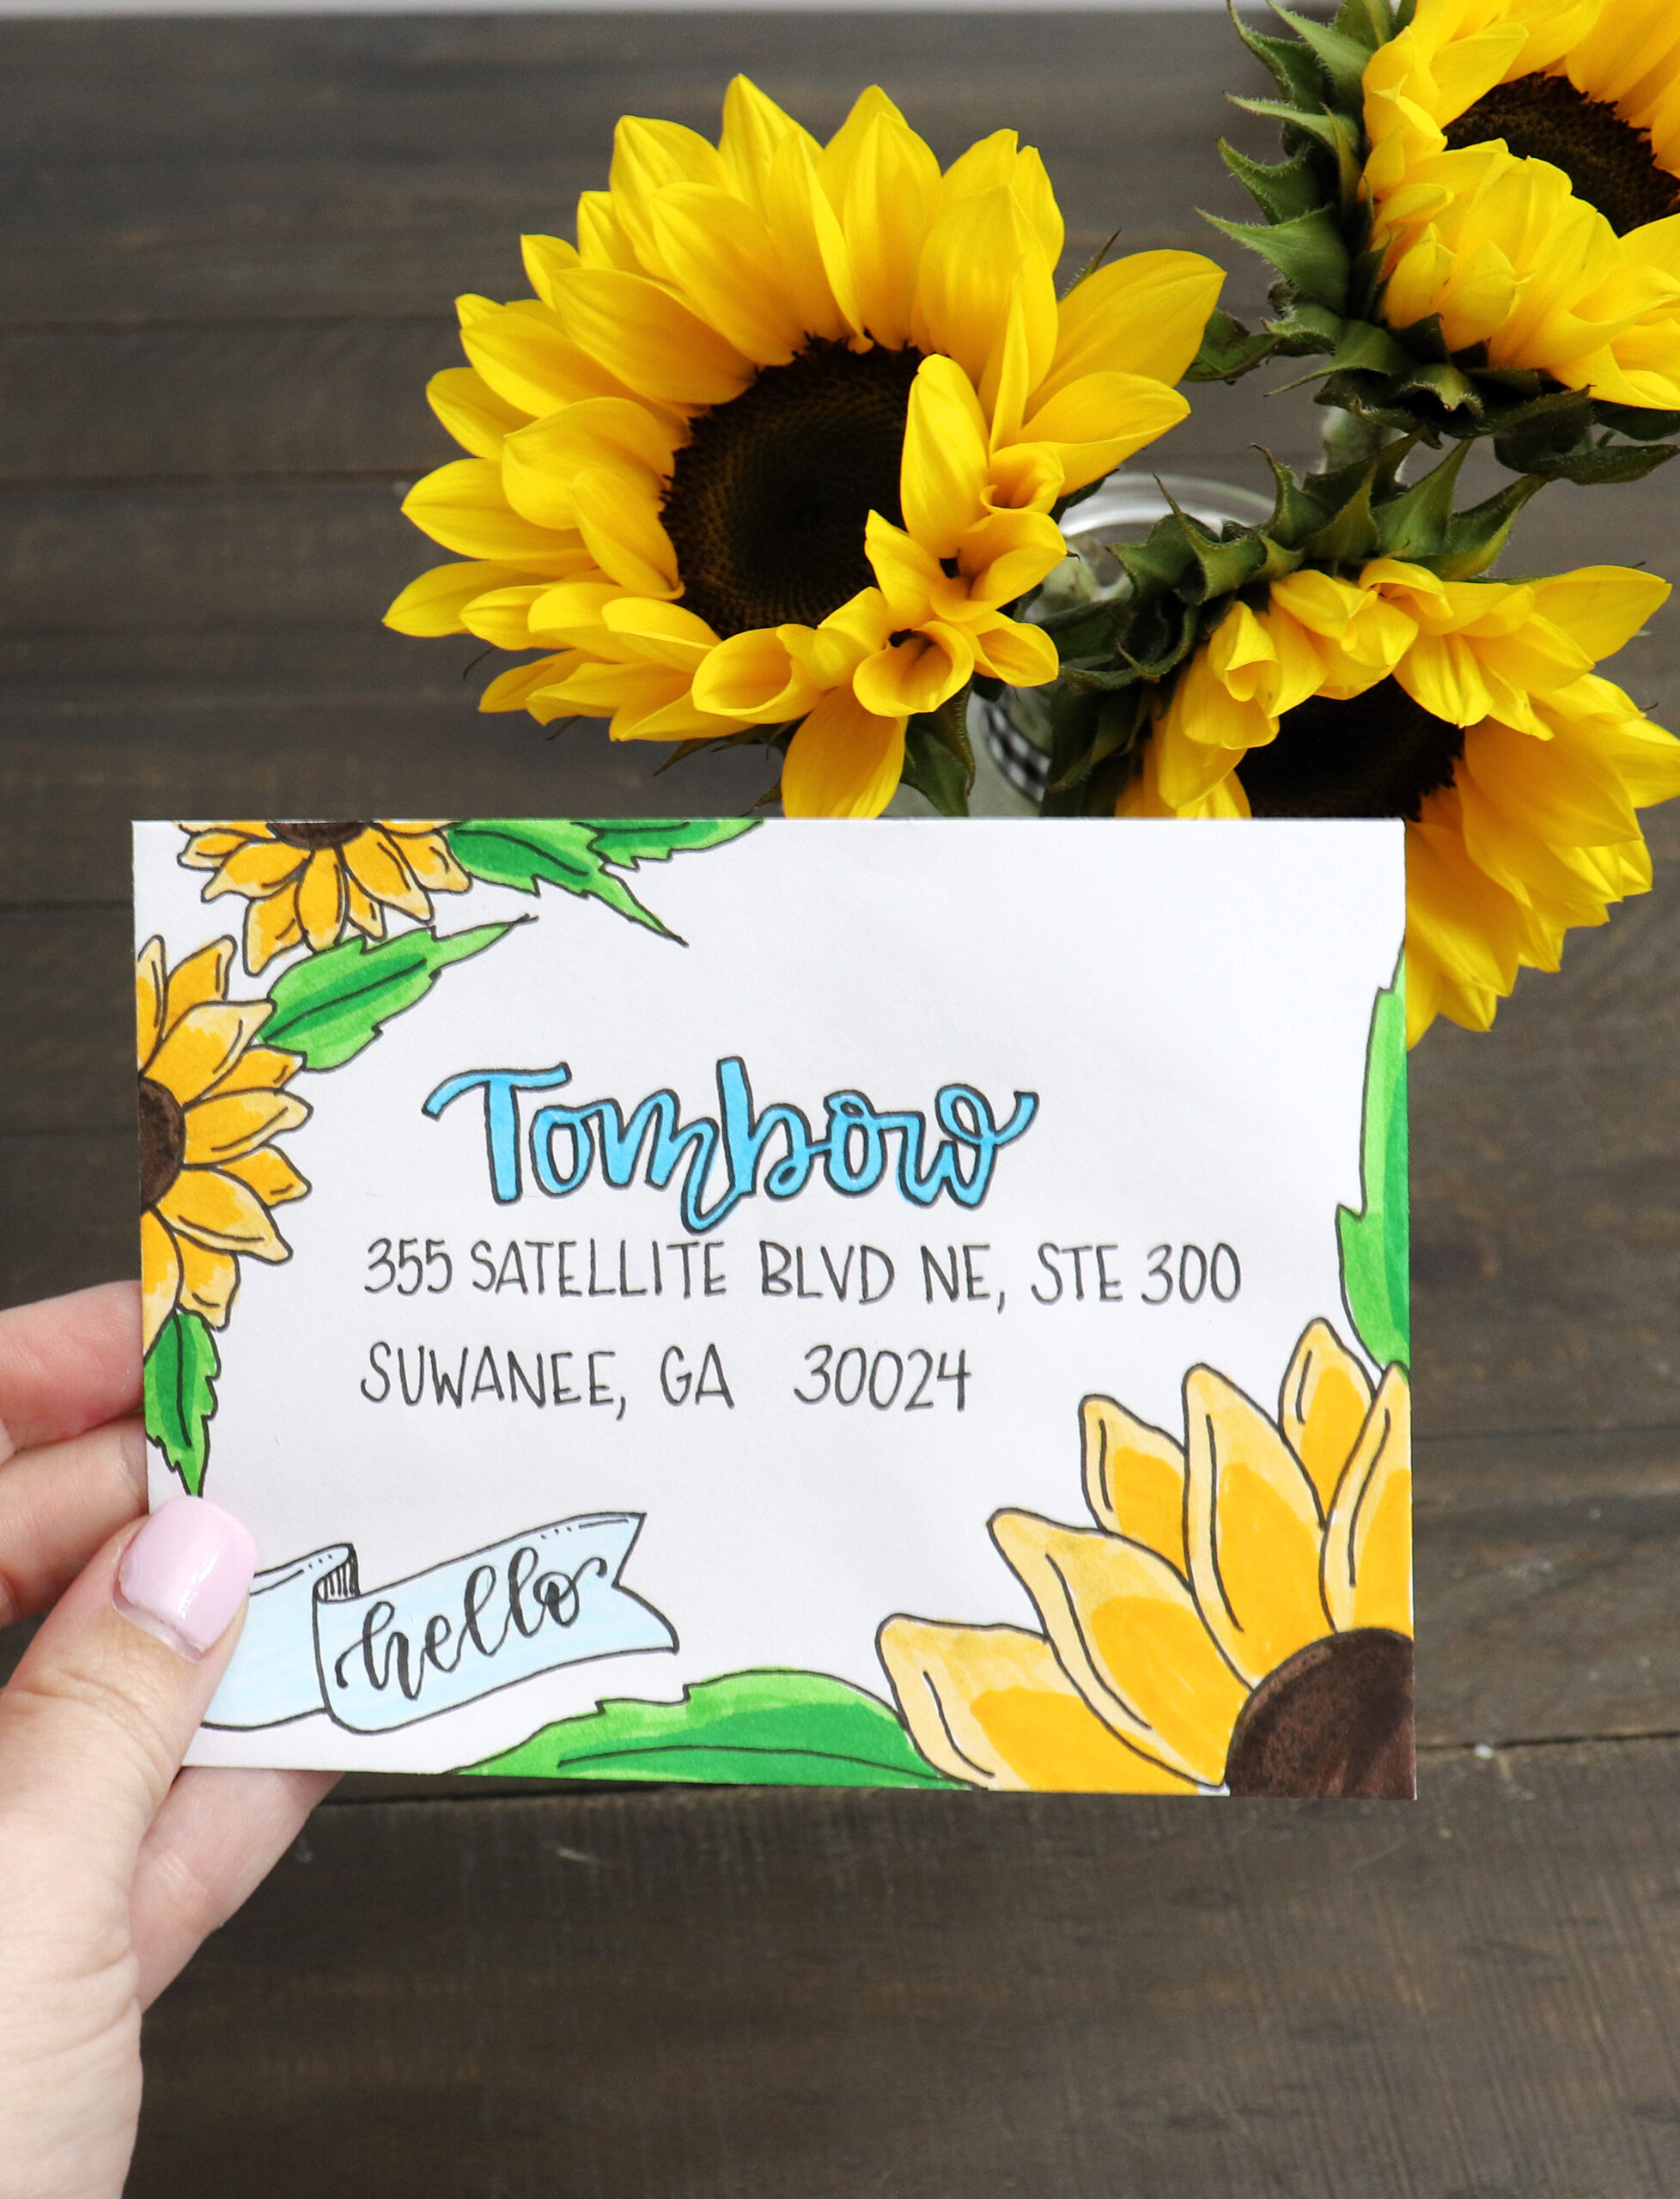 Tombow
355 SATELLITE BLVD NE, STE 300
SUWANEE, GA 30024
hello